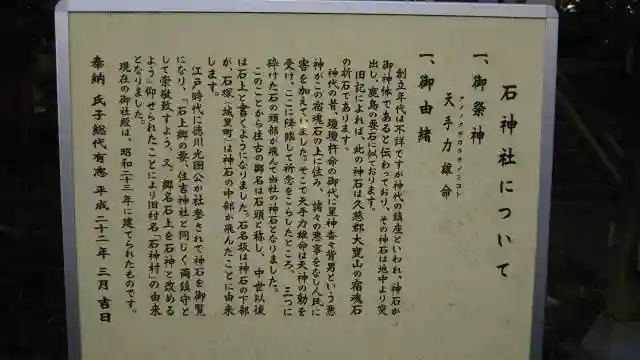 石神社について
一、御祭神
アメノタヂカラオノミコト
天手力雄命
一、御由緒
創立年代は不詳ですが神代の鎮座といわれ、神石が
御神体であると伝わっており、その神石は地中より突
出し、鹿島の要石に似ております。
旧記によれば、此の神石は久慈郡大甕山の宿魂石
の折石であります。
神代の昔、瓊瓊杵命の御代に星神香々背男という悪
神がこの宿魂石の上に住み、諸々の悪事をなし人民に
害を加えていました。そこで天手力雄命は天神の勅を
受け、ここに降臨して祈念をこらしたところ、三つに
砕けた石の頭部が飛んで当社の神石となりました。
このことから往古の郷名は石頭と称し、中世以後
は石上と書くようになりました。石名坂は神石の下部
が、石塚（城里町）は神石の中部が飛んだことに由来
します。
江戸時代に徳川光圀公が社参されて神石を御覧
になり、「石上郷の要、住吉神社と同じく両鎮守と
して崇敬致すよう、又、郷名石上を石神と改める
よう」仰せられたことにより旧村名「石神村」の由来
となりました。
現在の御社殿は、昭和二十三年に建てられたものです。
奉納 氏子総代有志 平成二十二年 三月吉日